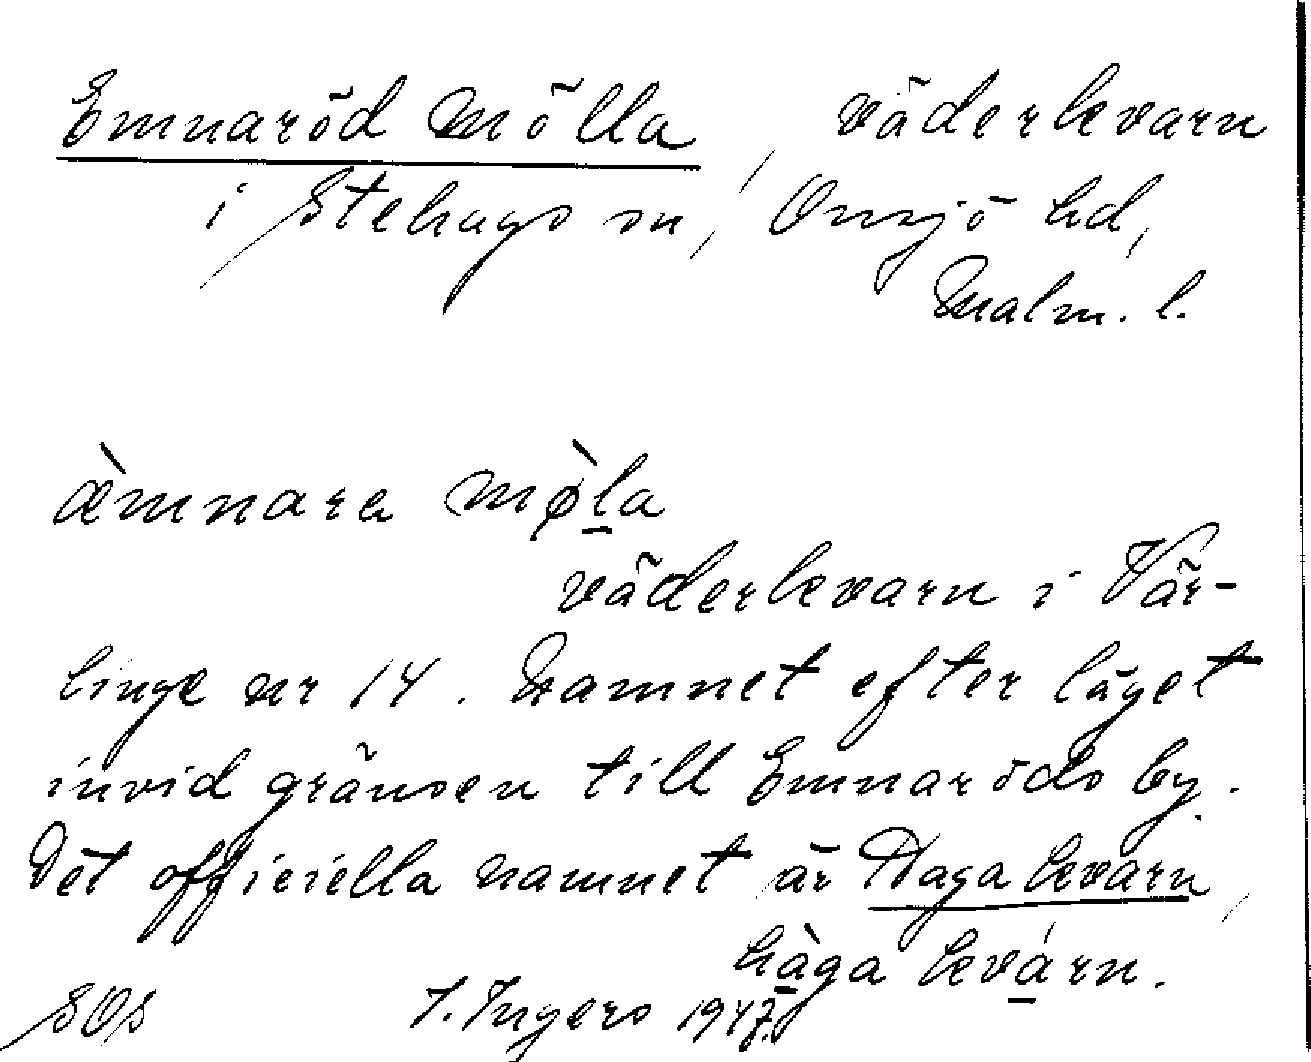 Emnaröd Mölla, väderkvarn
i Stehags sn, Onsjö hd,
Malm. l.
æ̀mnara mø̀l̠a
väderkvarn i Vär-
linge nr 14. Namnet efter läget
invid gränsen till Emnaröds by.
Det officiella namnet är Haga kvarn,
hà̠ga kvá̠rn.
SOs I. Ingers 1947.